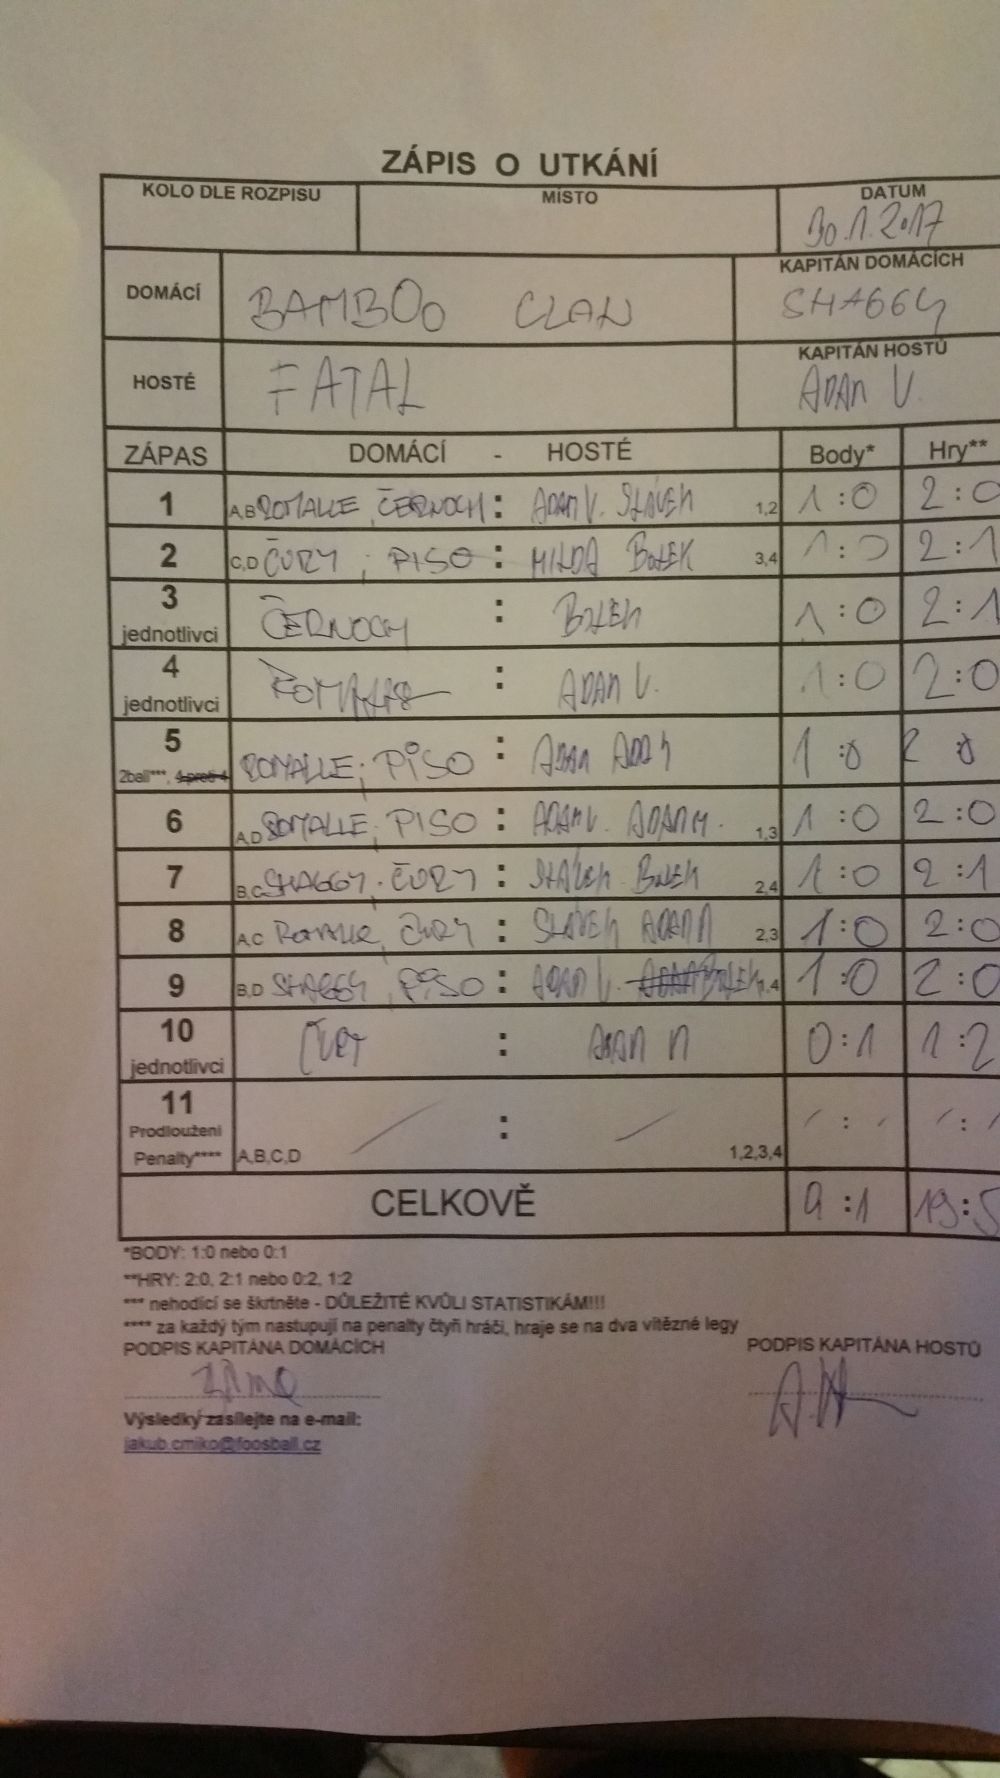 ZÁPIS O UTKÁNÍ
KOLO DLE ROZPISU MÍSTO DATUM
30.1.2017
DOMÁCÍ BAMBOO CLAN KAPITÁN DOMÁCÍCH
SHAGGY
HOSTÉ FATAL KAPITÁN HOSTŮ
ADAM V.
ZÁPAS DOMÁCÍ - HOSTÉ Body* Hry**
1 A,B ROMALLE, ČERNOCH : ADAM V. SLÁVEK 1,2 1:0 2:0
2 C,D ČURY ; PISO : MILDA BOLEK 3,4 1:0 2:1
3 jednotlivci ČERNOCH : BOLEK 1:0 2:1
4 jednotlivci : ADAM V. 1:0 2:0
5 2ball***, 4 proti 4 ROMALLE; PISO : ADAM 1:0 2:0
6 A,D ROMALLE; PISO : ADAM V. ADAM M. 1,3 1:0 2:0
7 B,C SHAGGY, ČURY : SLÁVEK BOLEK 2,4 1:0 2:1
8 A,C ROMALLE, ČURY : SLÁVEK ADAM 2,3 1:0 2:0
9 B,D SHAGGY, PISO : ADAM V. BOLEK 1,4 1:0 2:0
10 jednotlivci ČURY : ADAM M 0:1 1:2
11 Prodloužení Penalty**** A,B,C,D / : / 1,2,3,4 / : / / : /
CELKOVĚ 9:1 19:5
*BODY: 1:0 nebo 0:1
**HRY: 2:0, 2:1 nebo 0:2, 1:2
*** nehodící se škrtněte - DŮLEŽITÉ KVŮLI STATISTIKÁM!!!
**** za každý tým nastupují na penalty čtyři hráči, hraje se na dva vítězné legy
PODPIS KAPITÁNA DOMÁCÍCH PODPIS KAPITÁNA HOSTŮ
Výsledky zasílejte na e-mail:
jakub.cmiko@foosball.cz